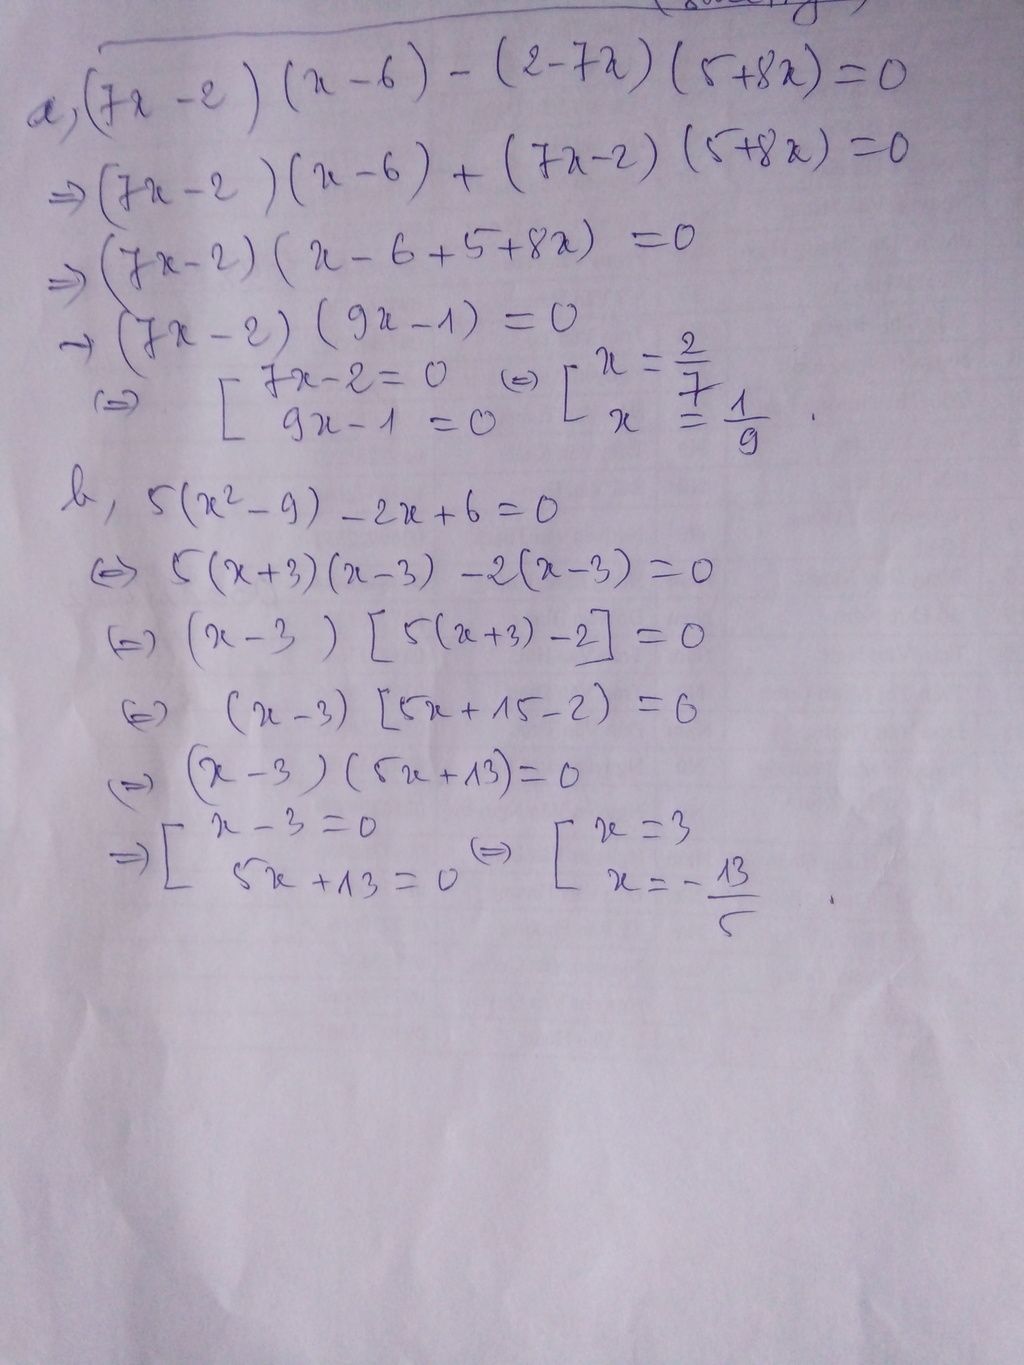 a, (7x - 2) (x - 6) - (2 - 7x) (5 + 8x) = 0
⇒ (7x - 2) (x - 6) + (7x - 2) (5 + 8x) = 0
⇒ (7x - 2) (x - 6 + 5 + 8x) = 0
→ (7x - 2) (9x - 1) = 0
⇔ [ 7x - 2 = 0 ⇔ [ x = 2/7
9x - 1 = 0 x = 1/9 .
b, 5(x² - 9) - 2x + 6 = 0
⇔ 5(x + 3)(x - 3) - 2(x - 3) = 0
⇔ (x - 3) [5(x + 3) - 2] = 0
⇔ (x - 3) [5x + 15 - 2) = 0
⇔ (x - 3) (5x + 13) = 0
⇒ [ x - 3 = 0 ⇔ [ x = 3
5x + 13 = 0 x = - 13/5 .